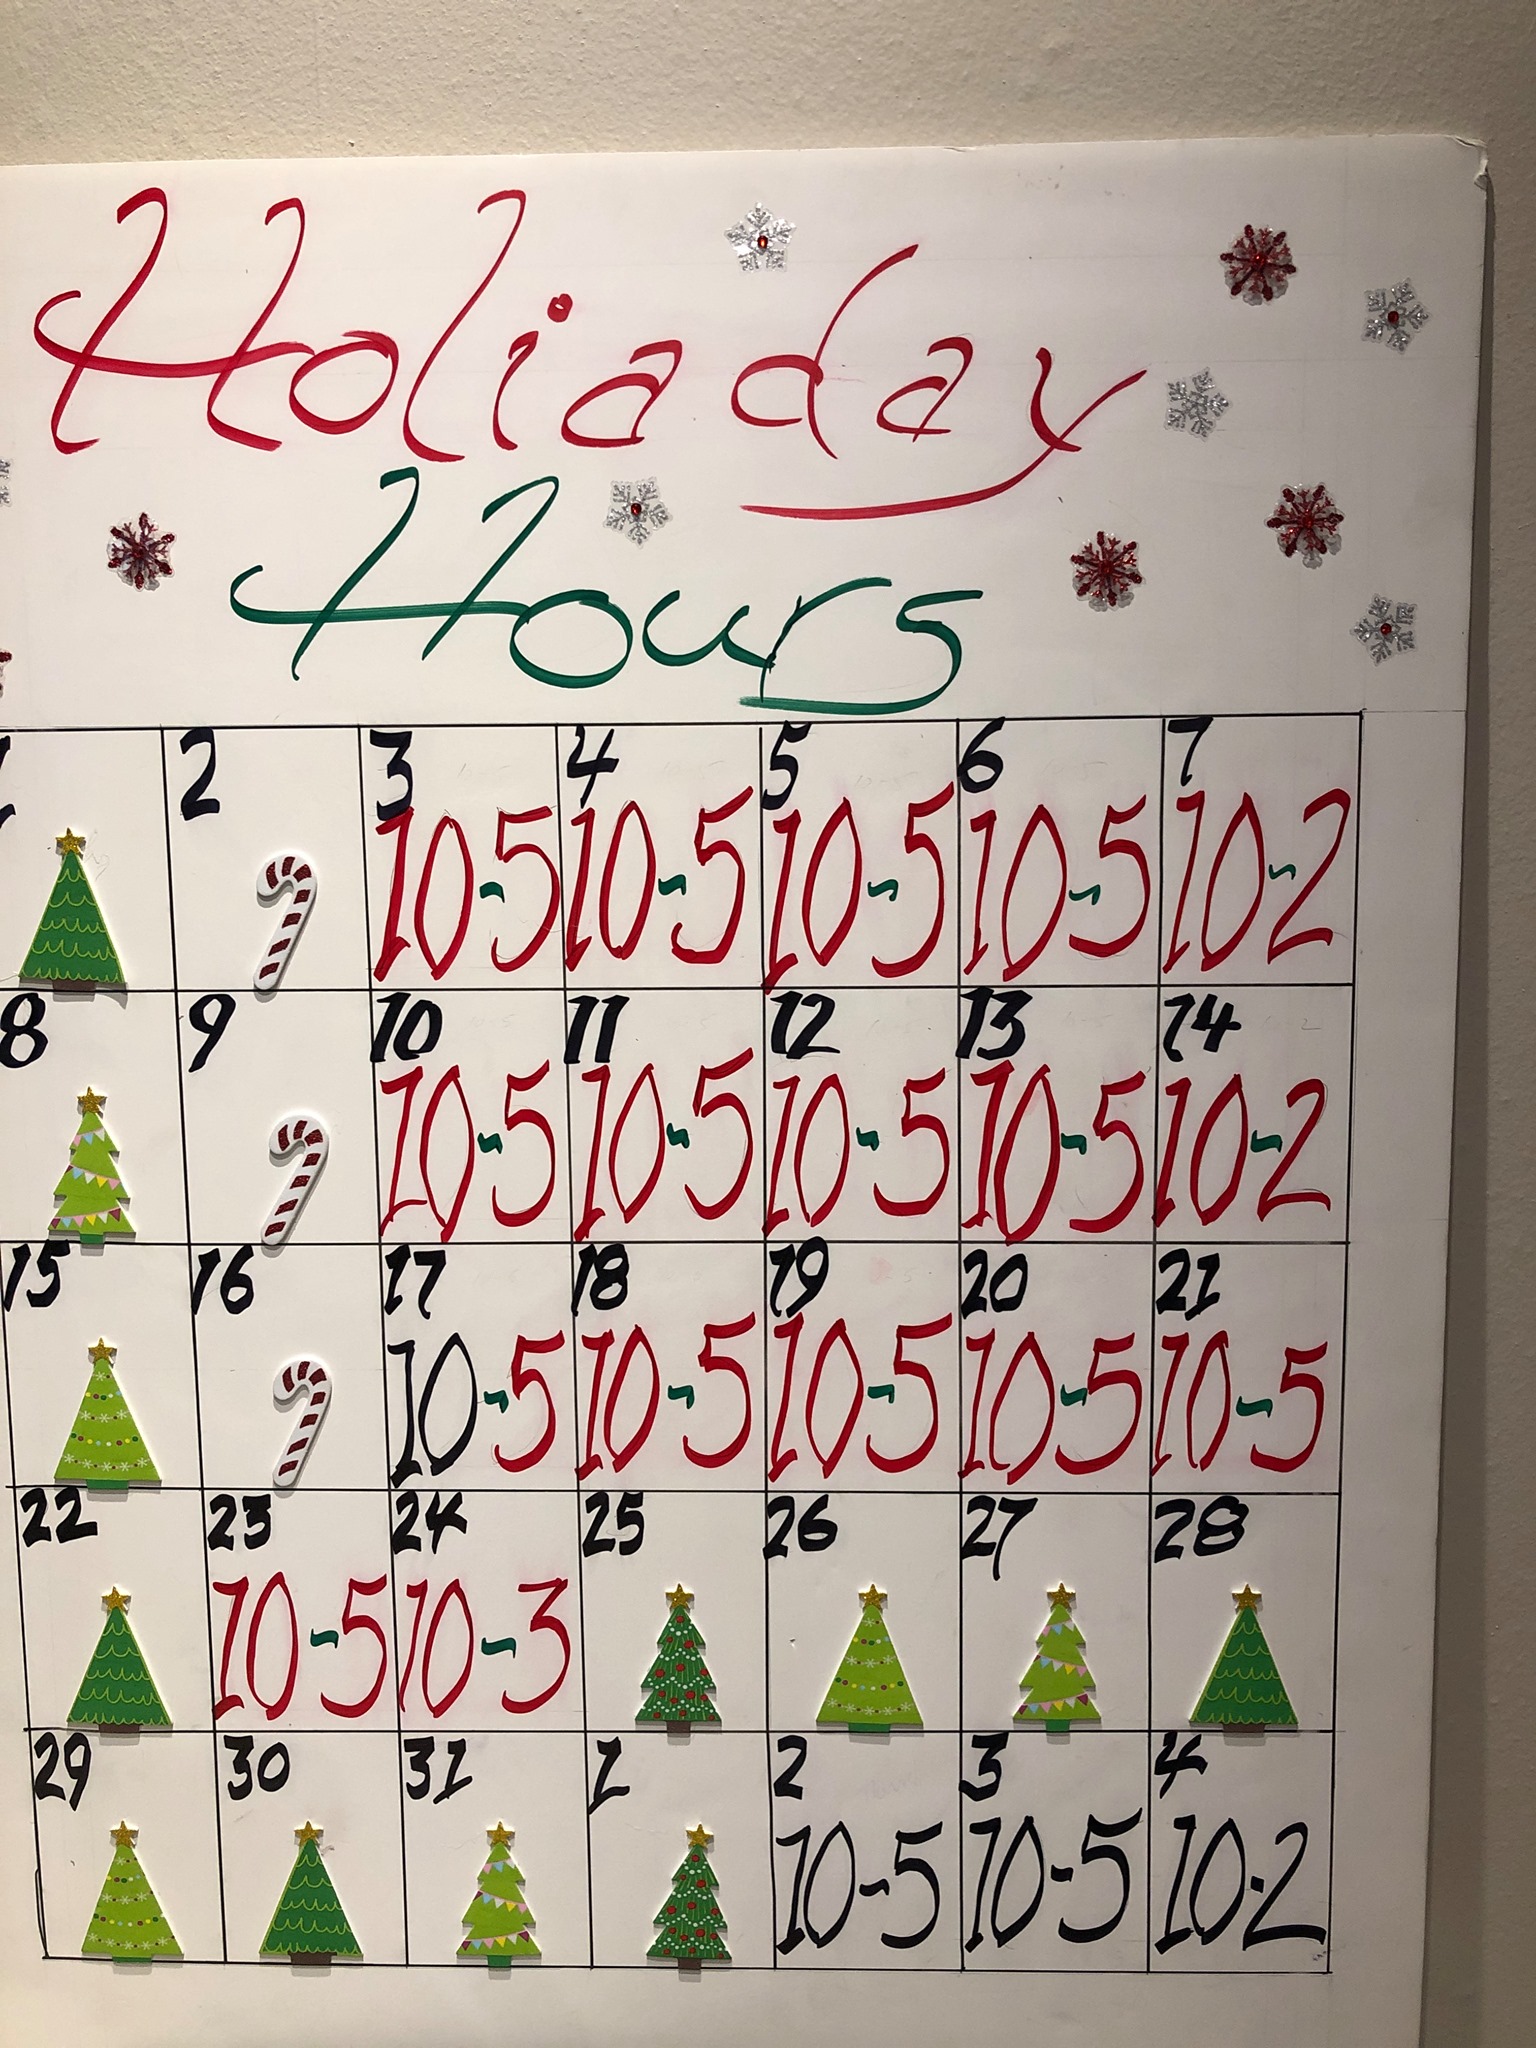 Holiaday
Hours
1 2 3 4 5 6 7
10-5 10-5 10-5 10-5 10-2
8 9 10 11 12 13 14
10-5 10-5 10-5 10-5 10-2
15 16 17 18 19 20 21
10-5 10-5 10-5 10-5 10-5
22 23 24 25 26 27 28
10-5 10-3
29 30 31 1 2 3 4
10-5 10-5 10-2